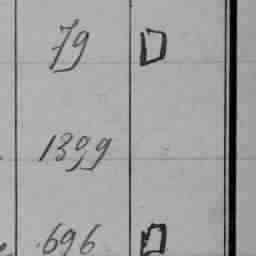 79
1399
696